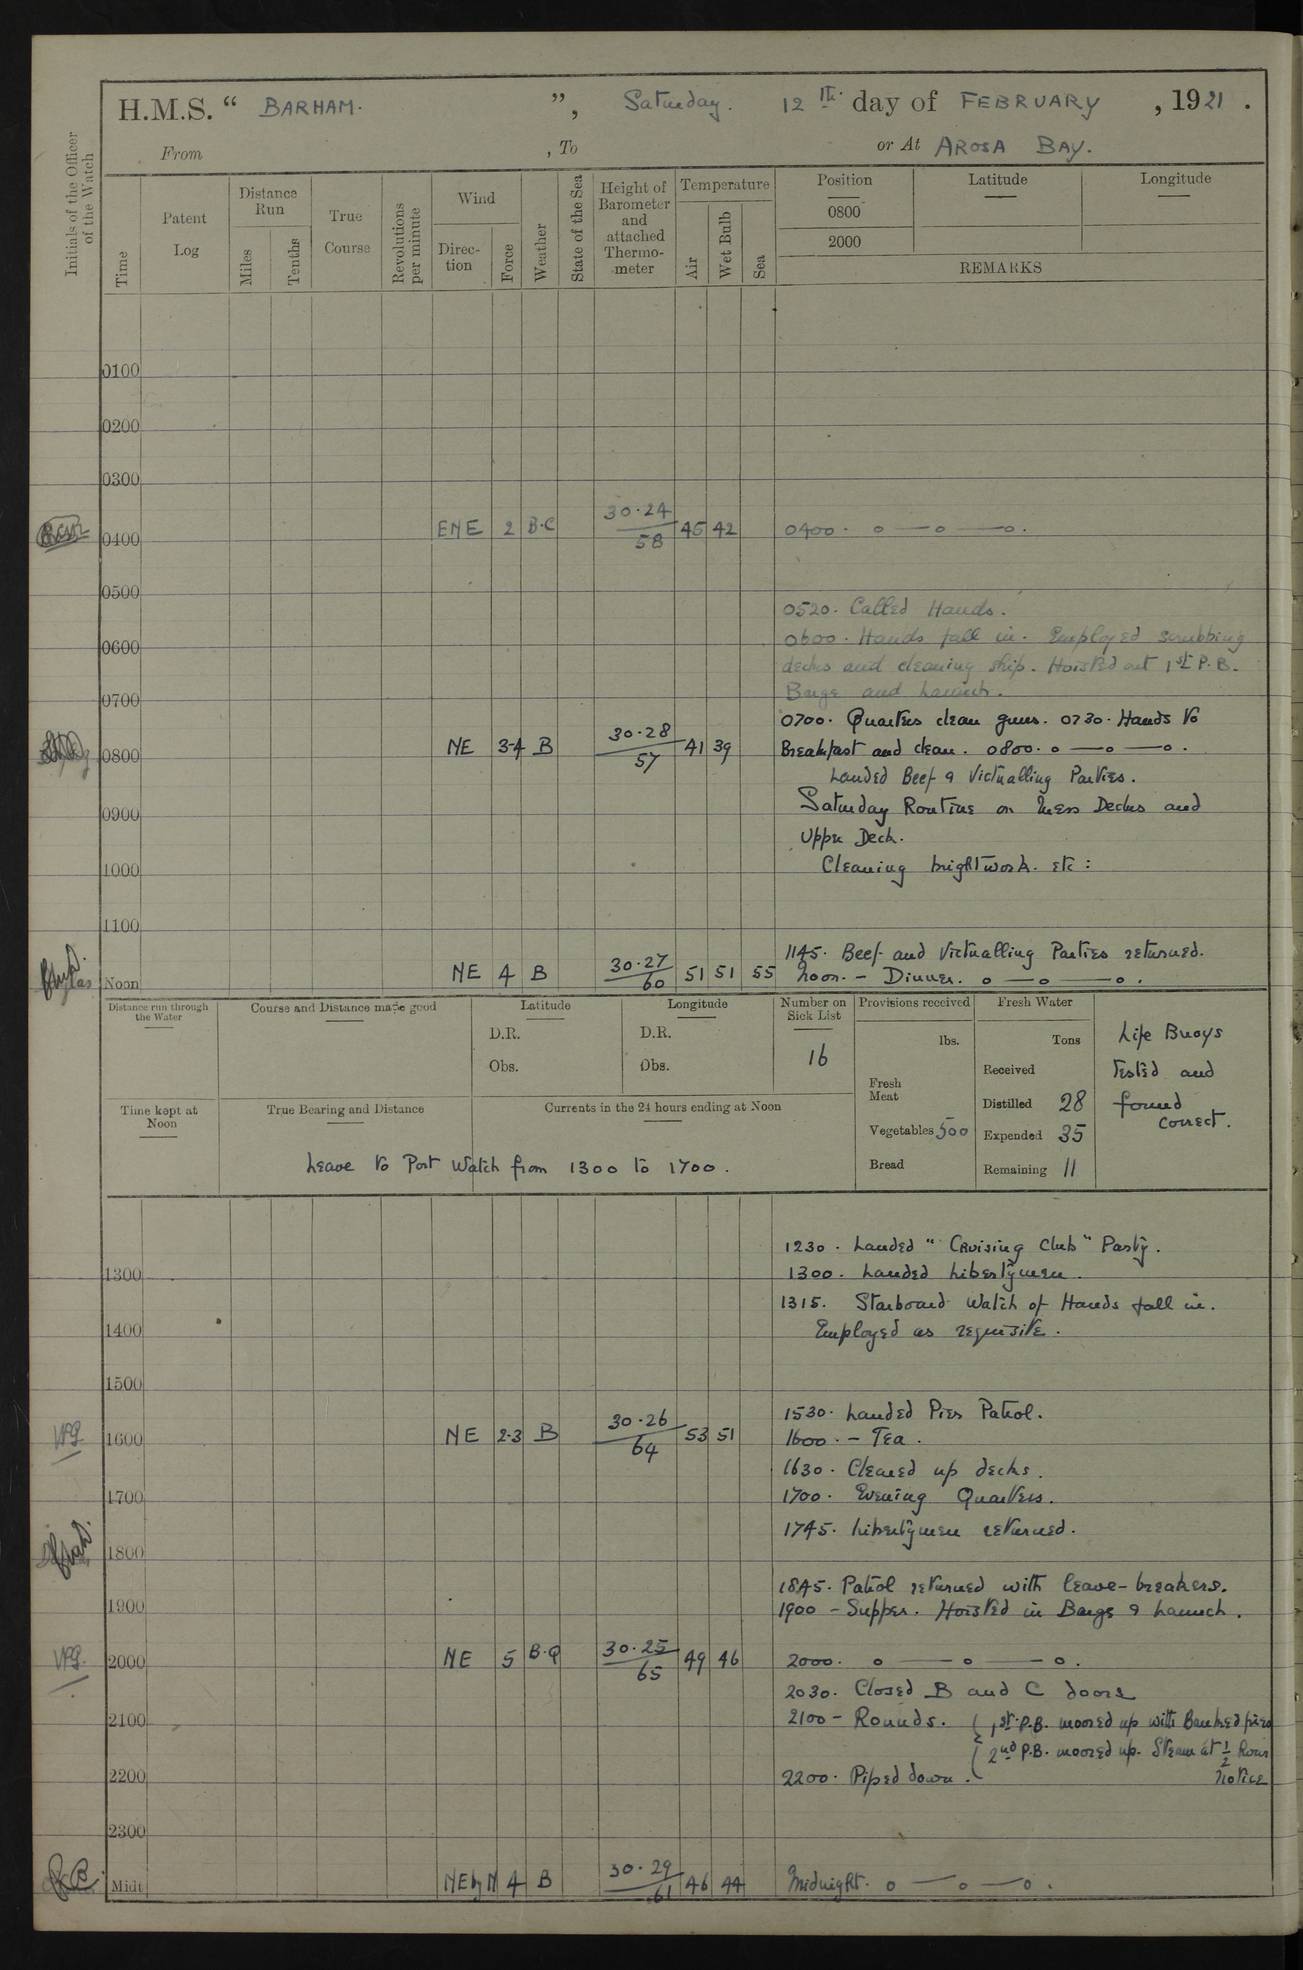 H.M.S. " BARHAM. ", Saturday. 12th day of FEBRUARY, 1921.
From , To or At AROSA BAY.
Initials of the Officer of the Watch
Time
Patent Log
Distance Run
Miles
Tenths
True Course
Revolutions per minute
Wind
Direc-tion
Force
Weather
State of the Sea
Height of Barometer and attached Thermo-meter
Temperature
Air
Wet Bulb
Sea
Position Latitude Longitude
0800
2000
REMARKS
0100
0200
0300
0400 ENE 2 B.C 30.24 58 45 42 0400. o — o — o.
0500
0520. Called Hands.
0600 0600. Hands fall in. Employed scrubbing
decks and cleaning ship. Hoisted out 1st P.B.
0700 Barge and Launch.
0700. Quarters clean guns. 0730. Hands to
0800 NE 3-4 B 30.28 57 41 39 Breakfast and clean. 0800. o — o — o.
Landed Beef & Victualling Parties.
0900 Saturday Routine on Mess Decks and
Upper Deck.
1000 Cleaning brightwork. etc :
1100
1145. Beef and Victualling Parties returned.
Noon NE 4 B 30.27 60 51 51 55 Noon. - Dinner. o — o — o.
Distance run through the Water
Course and Distance made good
Latitude
D.R.
Obs.
Longitude
D.R.
Obs.
Number on Sick List
16
Provisions received
lbs.
Fresh Meat
Vegetables 500
Bread
Fresh Water
Tons
Received
Distilled 28
Expended 35
Remaining 11
Life Buoys
tested and
found
correct.
Time kept at Noon
True Bearing and Distance
Currents in the 24 hours ending at Noon
Leave to Port Watch from 1300 to 1700.
1230. Landed "Cruising Club" Party.
1300 1300. Landed Libertymen.
1315. Starboard Watch of Hands fall in.
1400 Employed as requisite.
1500
1530. Landed Pier Patrol.
1600 NE 2-3 B 30.26 64 53 51 1600. - Tea.
1630. Cleared up decks.
1700 1700. Evening Quarters.
1745. Libertymen returned.
1800
1845. Patrol returned with leave-breakers.
1900 1900 - Supper. Hoisted in Barge & Launch.
2000 NE 5 B.Q 30.25 65 49 46 2000. o — o — o.
2030. Closed B and C doors
2100 2100 - Rounds. { 1st P.B. moored up with Banked fires
2nd P.B. moored up. Steam at ½ hour
2200 2200. Piped down. notice
2300
Midt NE by N 4 B 30.29 61 46 44 Midnight. o — o — o.